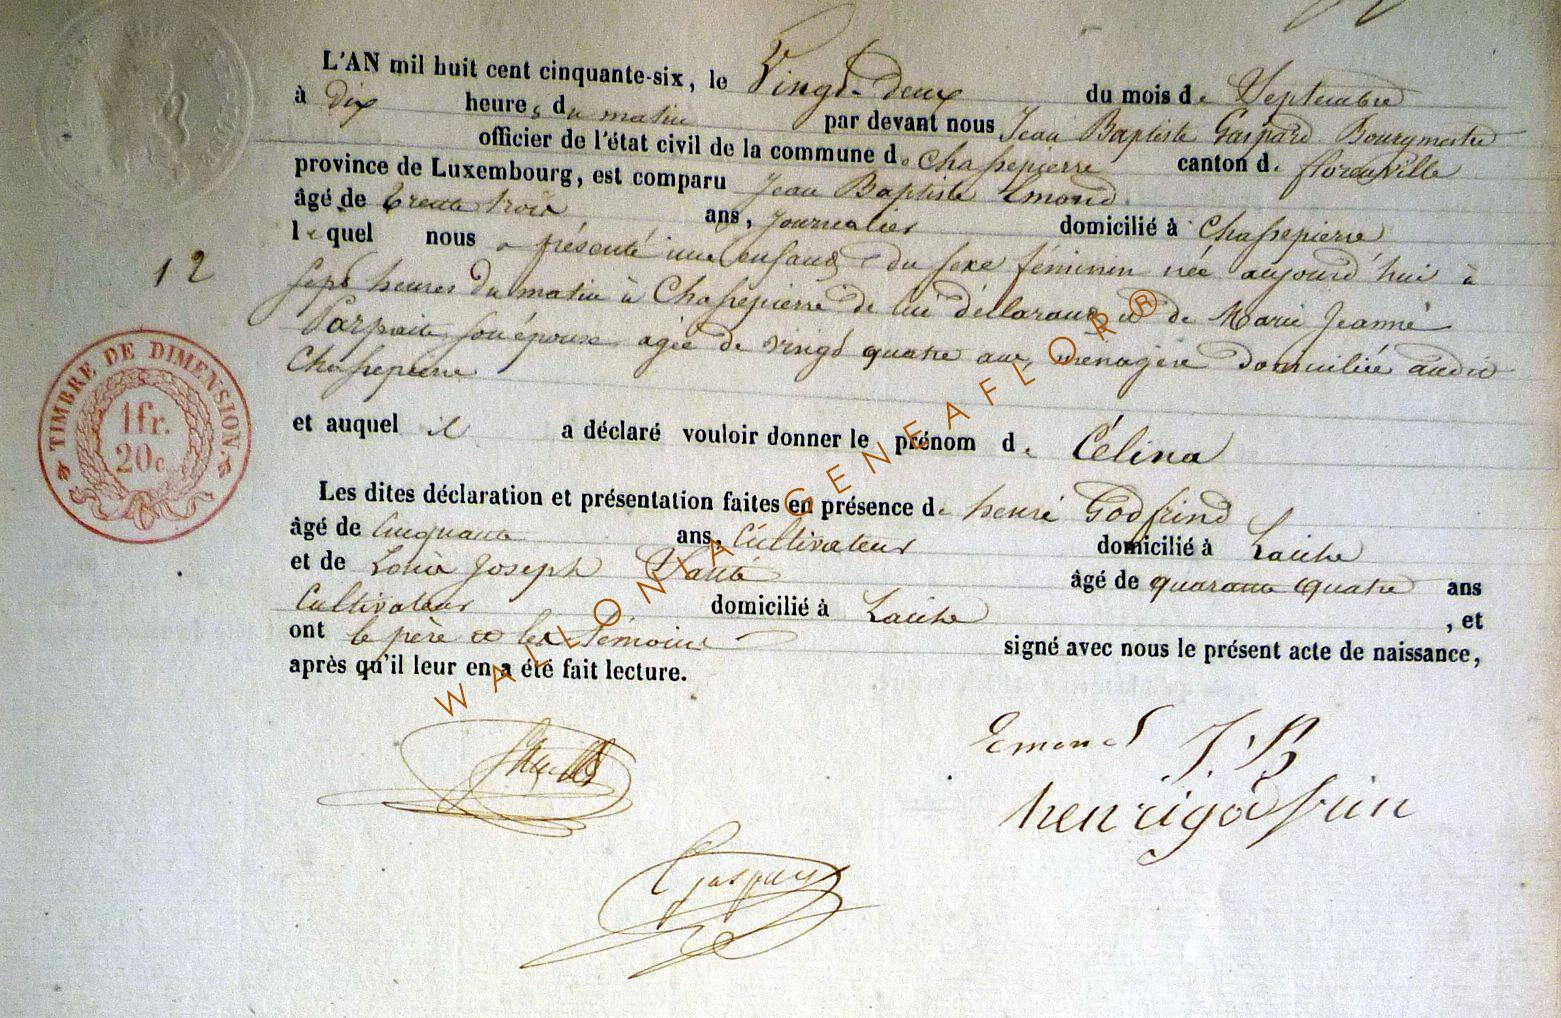 L'AN mil huit cent cinquante-six, le Vingt-deux du mois de Septembre
à dix heures du matin par devant nous Jean Baptiste Gaspard Bourgmestre
officier de l'état civil de la commune de Chassepierre canton de florenville
province de Luxembourg, est comparu Jean Baptiste Emond
âgé de trente trois ans, journalier domicilié à Chassepierre
lequel nous a présenté une enfant du sexe féminin née aujourd'hui à
12
sept heures du matin à Chassepierre de lui déclarant et de Marie Jeanne
Parfaite son épouse agée de vingt quatre ans, menagère domiciliée audit
Chassepierre
TIMBRE DE DIMENSION.
1 fr.
20 c.
et auquel il a déclaré vouloir donner le prénom de Célina
Les dites déclaration et présentation faites en présence de henri Godfrind
âgé de Cinquante ans, Cultivateur domicilié à Laiche
et de Louis Joseph âgé de quarante quatre ans
Cultivateur domicilié à Laiche , et
ont le père et les témoins signé avec nous le présent acte de naissance,
après qu'il leur en a été fait lecture.
WALLONIA GENEAFLOR®
Emond J. B
henri godfrin
Gaspard